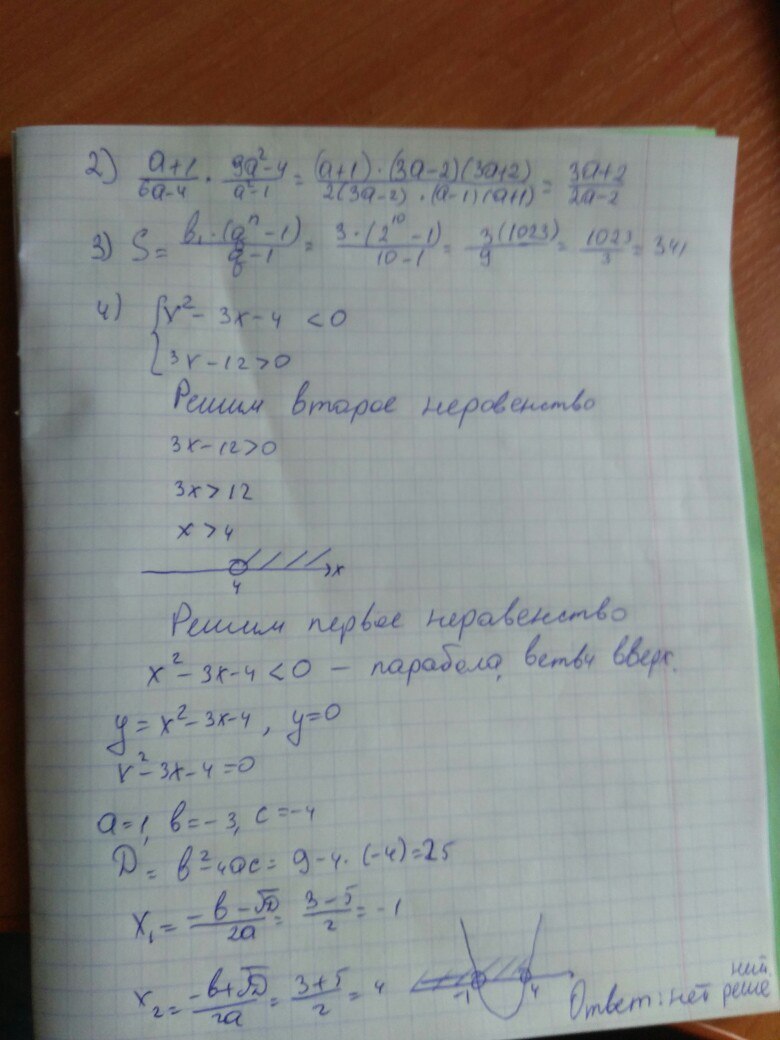 2) (a+1)/(6a-4) · (9a²-4)/(a²-1) = ((a+1)·(3a-2)(3a+2))/(2(3a-2)·(a-1)(a+1)) = (3a+2)/(2a-2)
3) S = (b₁·(qⁿ-1))/(q-1) = (3·(2¹⁰-1))/(10-1) = (3(1023))/9 = 1023/3 = 341
4) { x² - 3x - 4 < 0
3x - 12 > 0
Решим второе неровенство
3x-12>0
3x > 12
x > 4
4 x
Решим первое неравенство
x² - 3x - 4 < 0 – парабола, ветви вверх.
y = x² - 3x - 4, y = 0
x² - 3x - 4 = 0
a = 1, b = -3, c = -4
D = b² - 4ac = 9 - 4·(-4) = 25
x₁ = (-b-√D)/2a = (3-5)/2 = -1
x₂ = (-b+√D)/2a = (3+5)/2 = 4
-1 4
Ответ: нет реше
ний